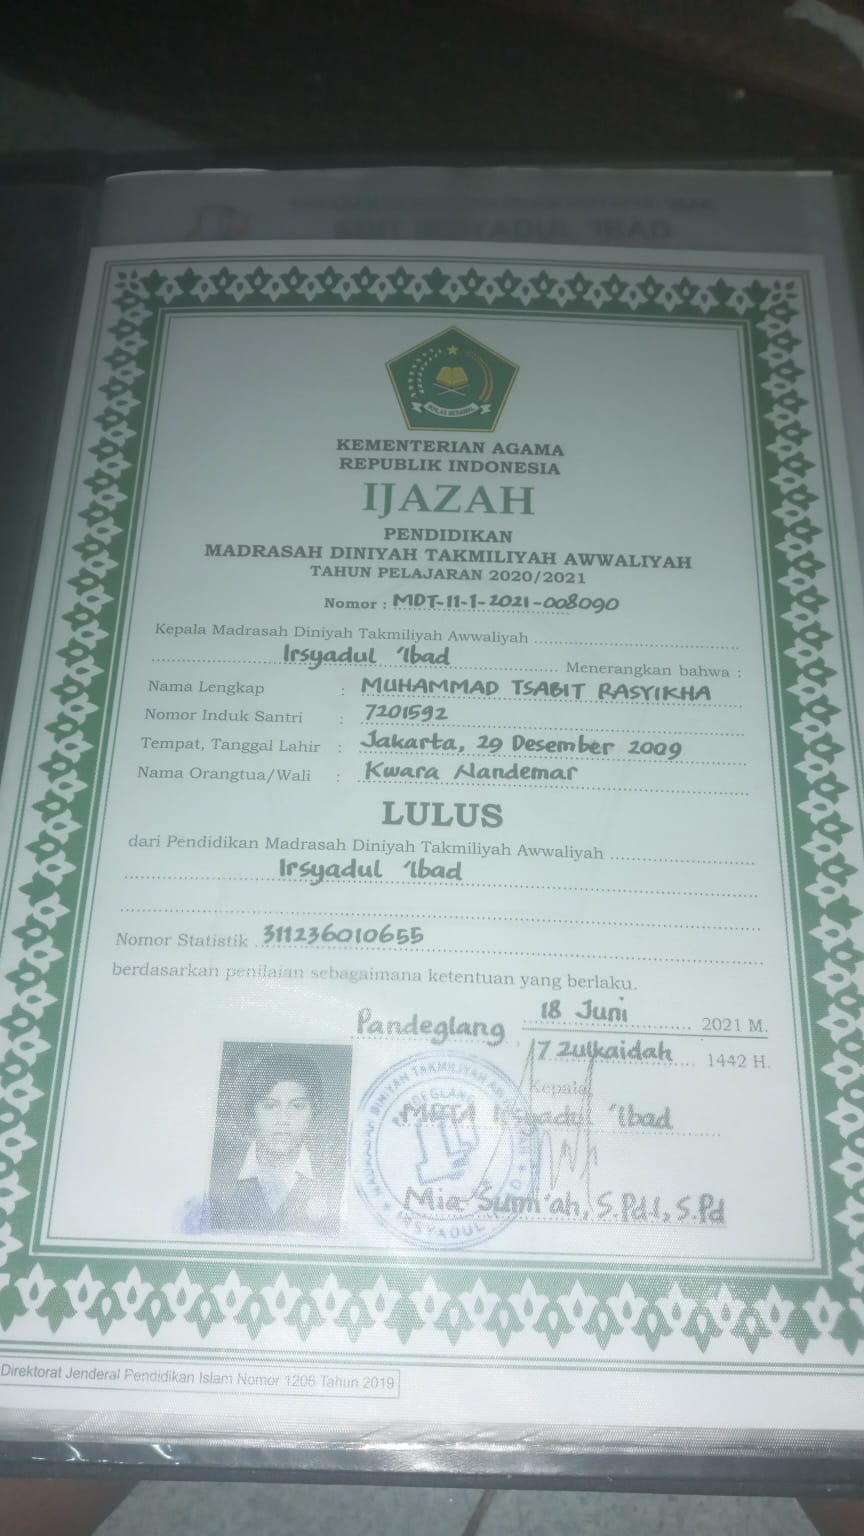 IKHLAS BERAMAL
KEMENTERIAN AGAMA
REPUBLIK INDONESIA
IJAZAH
PENDIDIKAN
MADRASAH DINIYAH TAKMILIYAH AWWALIYAH
TAHUN PELAJARAN 2020/2021
Nomor : MDT-11-1-2021-008090
Kepala Madrasah Diniyah Takmiliyah Awwaliyah
Irsyadul 'Ibad Menerangkan bahwa :
Nama Lengkap : MUHAMMAD TSABIT RASYIKHA
Nomor Induk Santri : 7201592
Tempat, Tanggal Lahir : Jakarta, 29 Desember 2009
Nama Orangtua/Wali : Kwara Nandemar
LULUS
dari Pendidikan Madrasah Diniyah Takmiliyah Awwaliyah
Irsyadul 'Ibad
Nomor Statistik 311236010655
berdasarkan penilaian sebagaimana ketentuan yang berlaku.
Pandeglang, 18 Juni 2021 M.
7 Zulkaidah 1442 H.
Kepala,
MDTA Irsyadul 'Ibad
Mia Sum'ah, S.Pd.I, S.Pd
Direktorat Jenderal Pendidikan Islam Nomor 1206 Tahun 2019